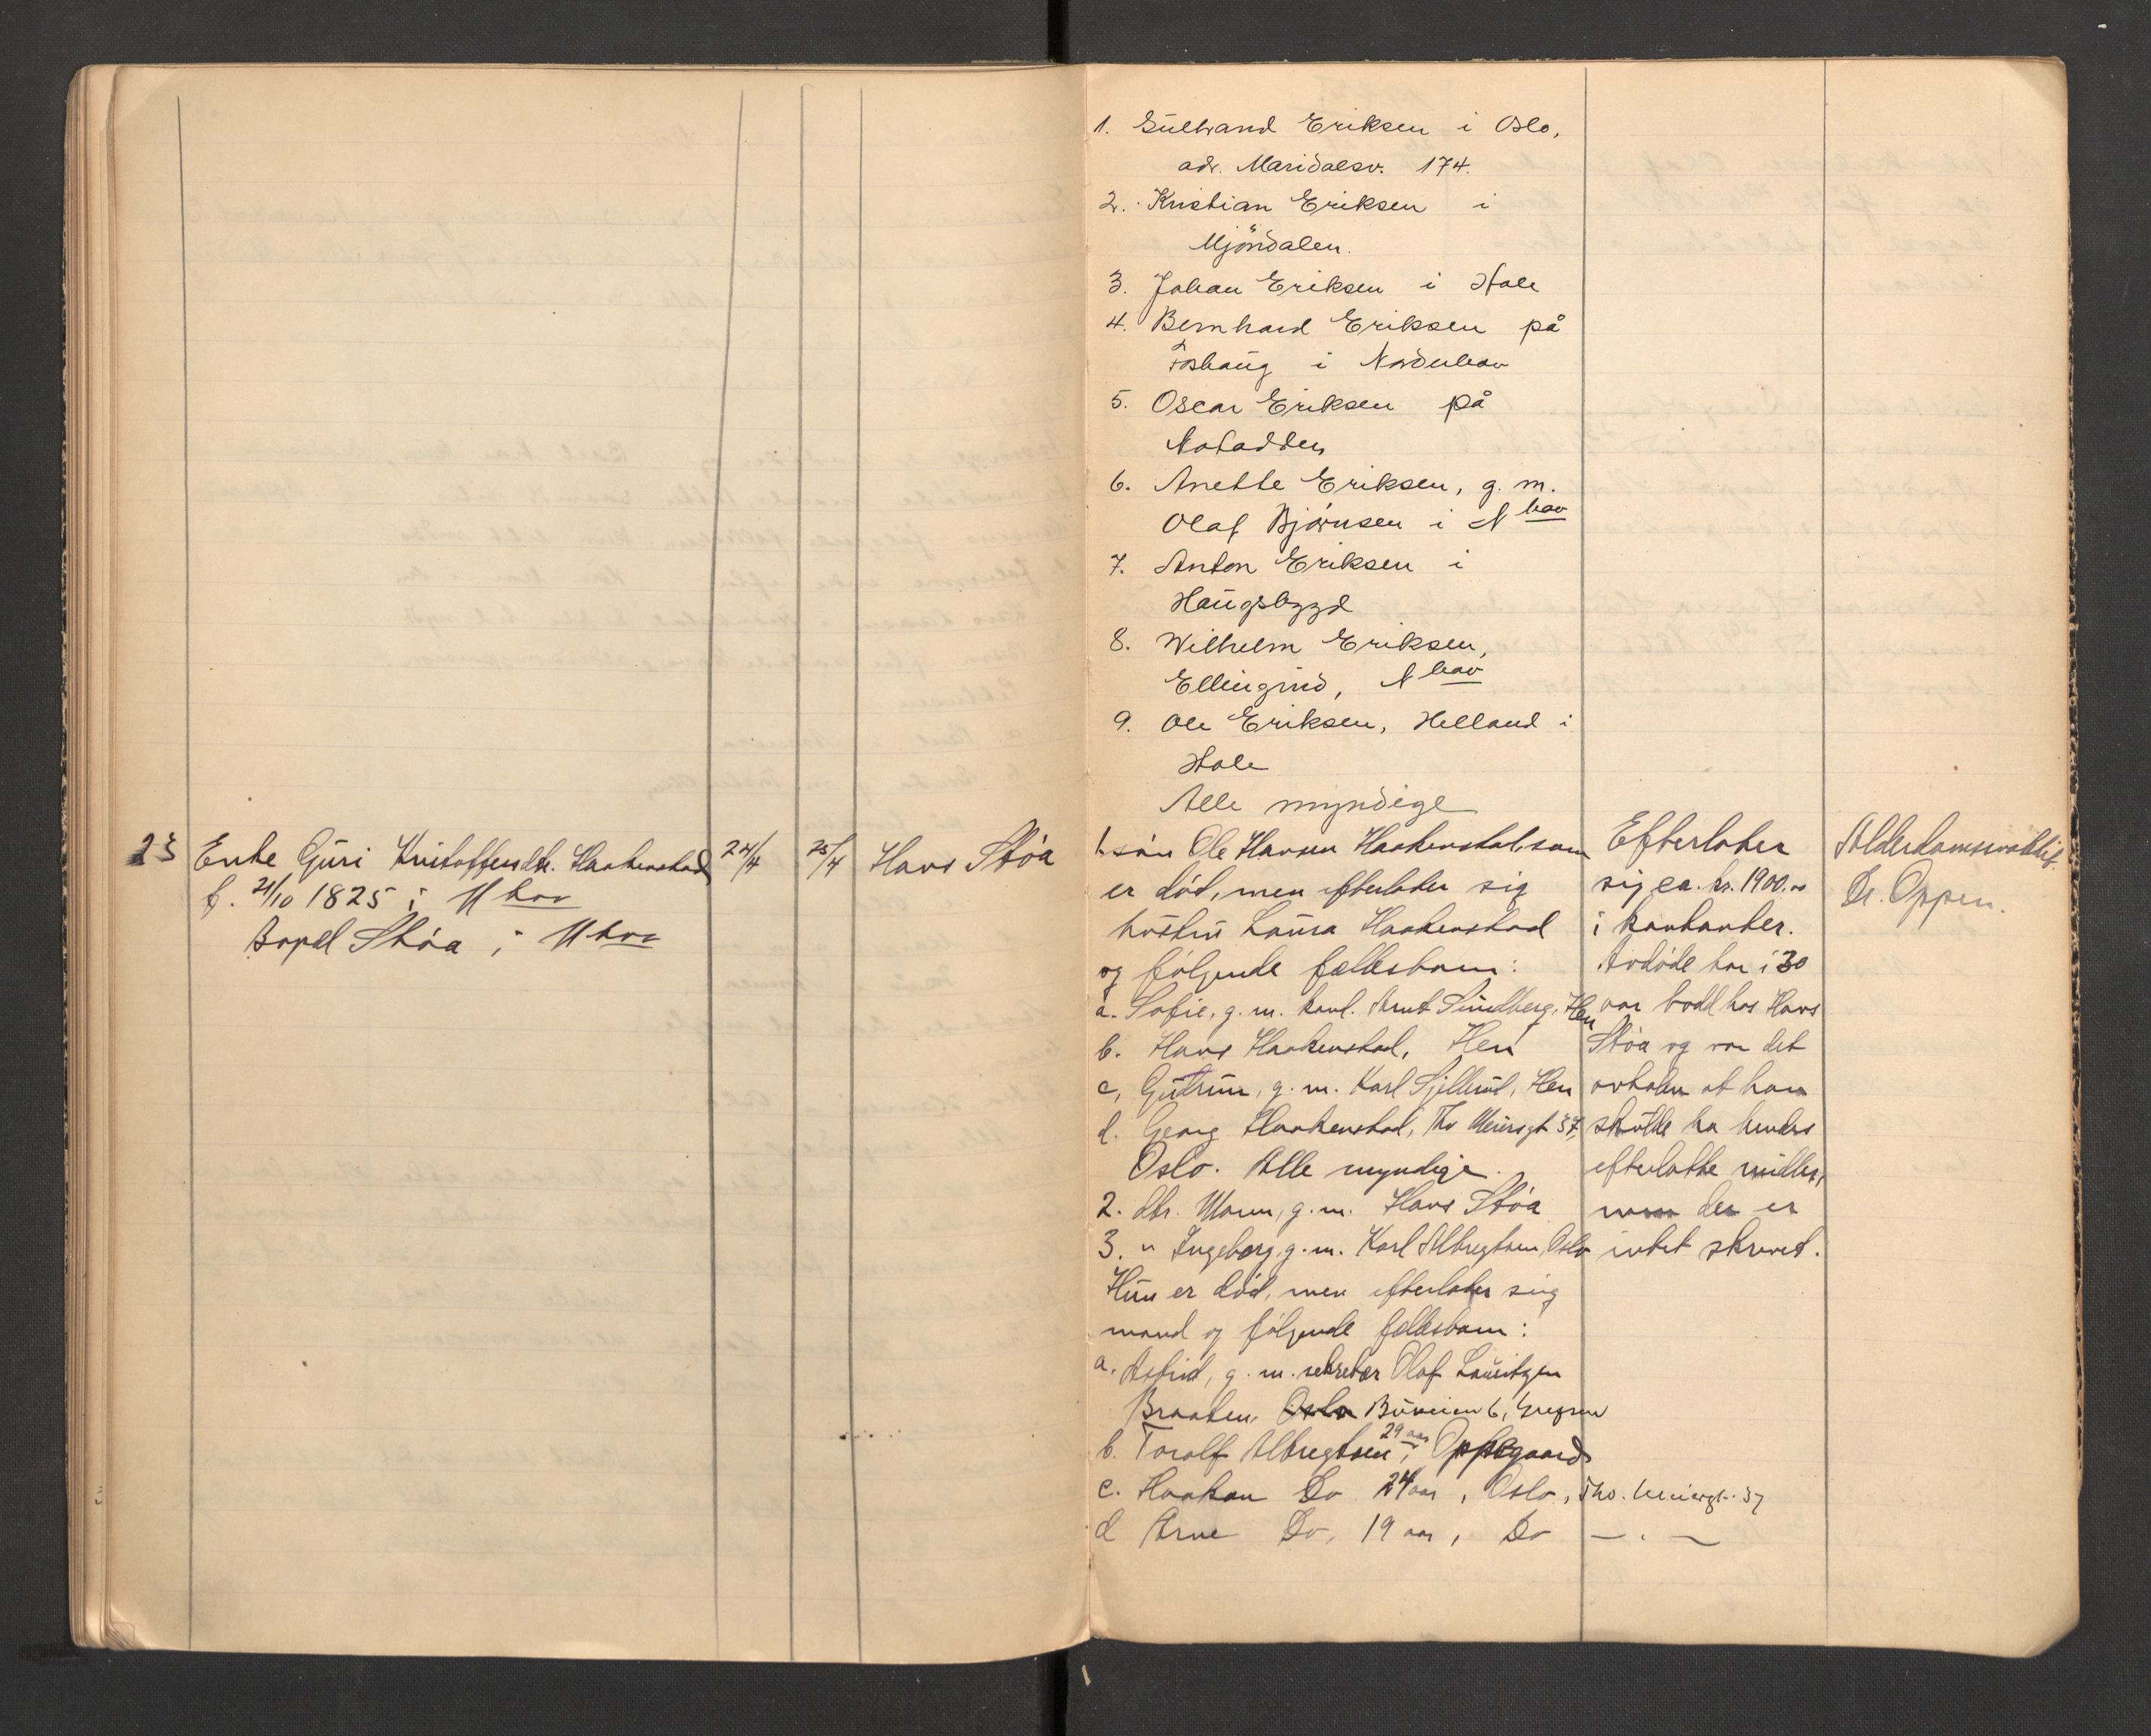 1. Gulbrand Eriksen i Oslo,
adr. Maridalsv. 174.
2. Kristian Eriksen i
Mjöndalen.
3. Johan Eriksen i Hole
4. Bernhard Eriksen på
i Norderhov
5. Oscar Eriksen på
Notodden
6. Anette Eriksen, g. m.
Olaf Björnsen i Nhov
7. Anton Eriksen i
Haugsbygd
8. Wilhelm Eriksen,
Ellingrud, Nhov
9. Ole Eriksen, Helland i
Hole
Alle myndige
23 Enke Guri Kristoffersdtr. Haakenstad 24/4 25/4 Hans Stóa
f. 21/10 1825 i Nhov
Bopel Stóa i Nhov
1. sön Ole Hansen Haakenstad, som
er död, men efterlater sig
hustru Laura Haakenstad
og fölgende fællesbarn:
a. Sofie, g. m. Arnt Sundberg, Hen
b. Hans Haakenstad, Hen
c, Gudrun, g. m. Karl Gjellerud, Hen
d. Georg Haakenstad, Th. Meiersgt 37,
Oslo. Alle myndige.
2. dtr. Maren, g. m. Hans Stóa
3. " Ingeborg, g. m. Karl Albregtsen, Oslo
Hun er död, men efterlater sig
mand og fölgende fællesbarn:
a. Astrid, g. m. sekretær Olaf Lauritzen
Braaten, Oslo Buveien 6, Grefsen
b. Toralf Albregtsen, 29 aar, Oppegaard
c. Haakon Do 24 aar, Oslo, Tho. Meiergt. 37
d Arne Do, 19 aar, Do — . —
Efterlater
sig ca. kr. 1900.00
i kontanter.
Avdöde har i 30
aar bodd hos Hans
Stóa og var det
avtalen at han
skulde ha hendes
efterlatte midler,
men der er
intet skrevet.
Alderdomssvakhet
Dr. Oppen.